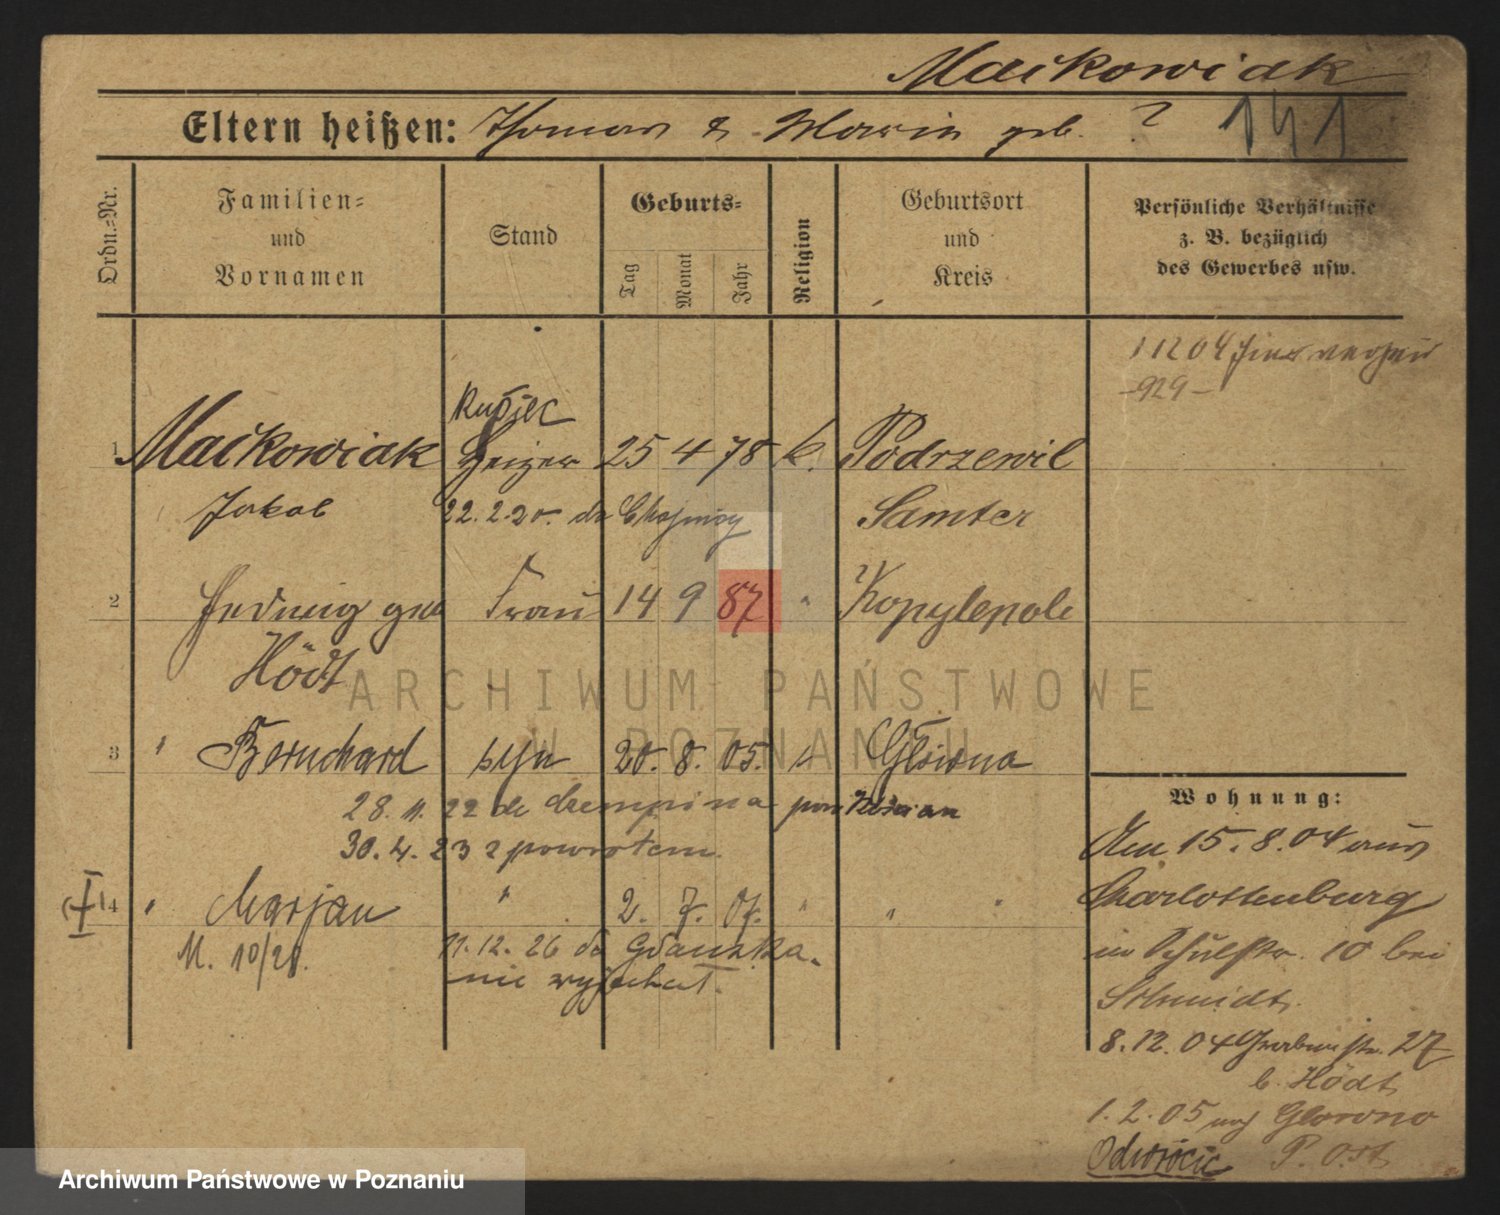 Maćkowiak
Eltern heißen: Thomas & Maria geb. ? 141
Ordn.=Nr.
Familien=
und
Vornamen
Stand
Geburts=
Tag
Monat
Jahr
Religion
Geburtsort
und
Kreis
Persönliche Verhältnisse
z. B. bezüglich
des Gewerbes usw.
11204
-929-
Kupiec
1 Maćkowiak Heizer 25 4 78 k. Podrzewil
Jakob 22.2.20. do Samter
2 Hedwig geb Frau 14 9 87 " Kopylepole
Hödt
ARCHIWUM PAŃSTWOWE
W POZNANIU
3 " Bernchard syn 20. 8. 05. " Główna
28. 11. 22 do Czempinia pow Kościan
30. 4. 23 z powrotem.
4 " Marjan " 2. 7. 07. " " "
M. 10/28. 11.12.26 do Gdańska.
nie wyjechał.
Wohnung:
Am 15.8.04 aus
Charlottenburg
in Schulstr. 10 bei
Schmidt.
8.12.04 Grabenstr. 27
b. Hödt
1.2.05 nach Glowno
P. Ost
Odwrócić
Archiwum Państwowe w Poznaniu